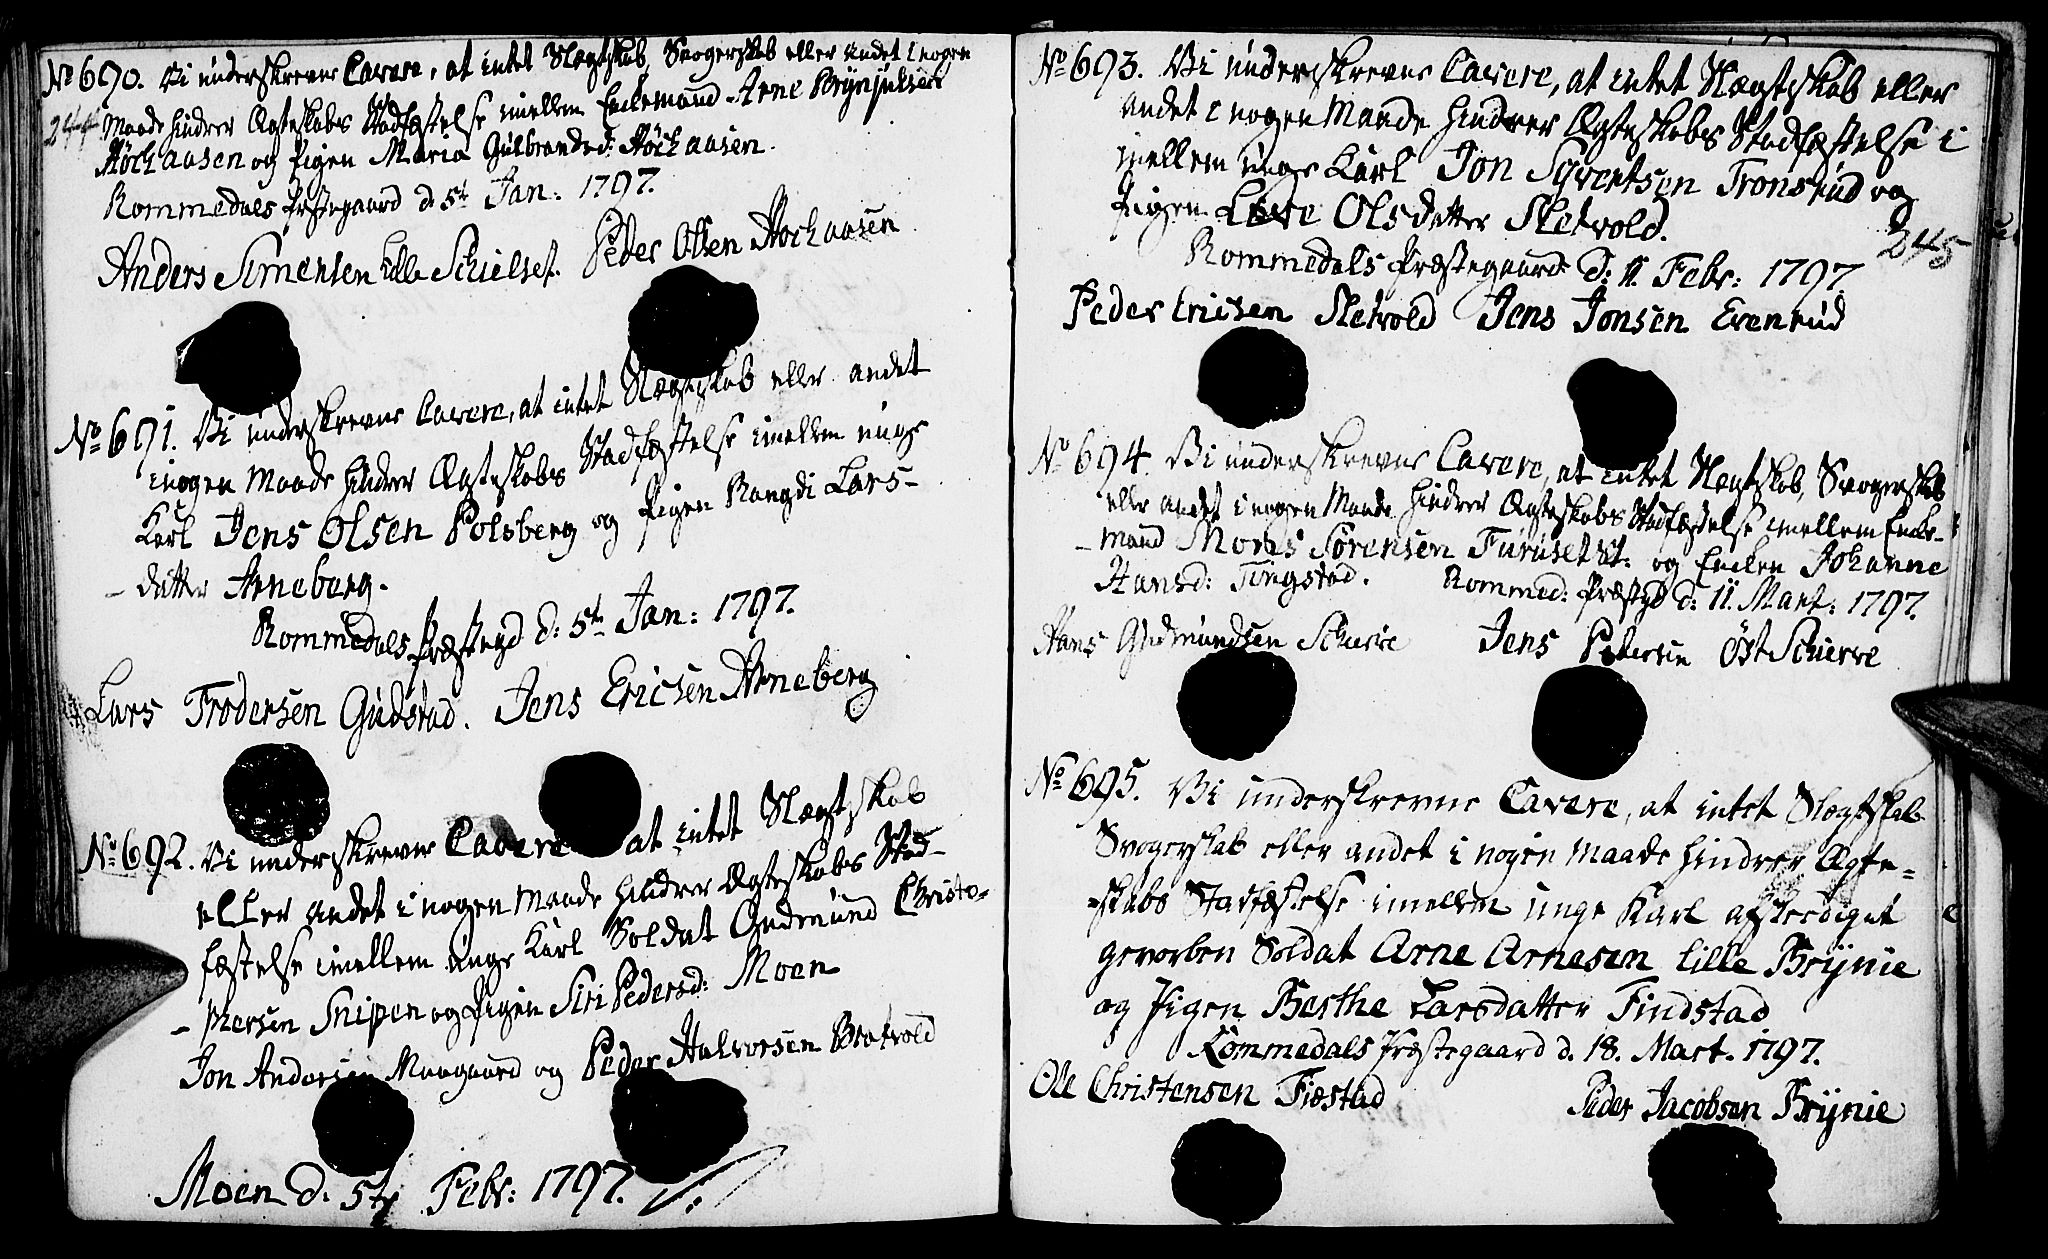 No 690. Vi underskrevne Cavere, at intet Slægtskab, Svogerskab eller andet i nogen
244 Maade hindrer Ægteskabs Stadfæstelse imellem Enkemand Arne Brynjulsen
Hochaasen og Pigen Maria Gulbrandsd: Hochaasen.
Rommedals Præstegaard d. 5te Jan: 1797.
Anders Simensen Lille Schielset. Peder Olsen Hochaasen
No 691. Vi underskrevne Cavere, at intet Slægtskab eller andet
i nogen Maade hindrer Ægteskabs Stadfæstelse imellem unge
Karl Jens Olsen Polsberg og Pigen Rangdi Lars-
- datter Arneberg.
Rommedals Præstegd d: 5te Jan: 1797.
Lars Frodersen Gudstad. Jens Ericsen Arneberg
No 692. Vi underskrevne Cavere at intet Slægtskab
eller andet i nogen Maade hindrer Ægteskabs Stad-
fæstelse imellem unge Karl Soldat Gudmund Christo-
- phersen Snipen og Pigen Siri Pedersd: Moen
Jon Andersen Moegaard og Peder Halvorsen Bratvold
Moen d. 5te Febr: 1797.
No 693. Vi underskrevne Cavere, at intet Slægtskab eller
andet i nogen Maade hindrer Ægteskabs Stadfæstelse i
mellem unge Karl Jon Syvertsen Tronsrud og
Pigen Live Olsdatter Sletvold.
245
Rommedals Præstegaard d: 11. Febr: 1797.
Peder Ericsen Sletvold Jens Jonsen Evenrud
No 694. Vi underskrevne Cavere, at intet Slægtskab, Svogerskab
eller andet i nogen Maade hindrer Ægteskabs Stadfæstelse imellem Enke-
- mand Morts Sørensen Furuset et: og Enken Johanne
Hansd: Tingstad. Rommed: Præstgd d: 11. Mart: 1797.
Hans Gudmundsen Schierre Jens Pedersen Øst Schierre
No 695. Vi underskrevne Cavere, at intet Slægtskab
Svogerskab eller andet i nogen Maade hindrer Ægte=
=skabs Stadfæstelse imellem unge Karl afskediget
gevorben Soldat Arne Arnesen Lille Brynie
og Pigen Berthe Larsdatter Findstad
Rommedals Præstegaard d. 18. Mart. 1797.
Ole Christensen Fiæstad Peder Jacobsen Brynie